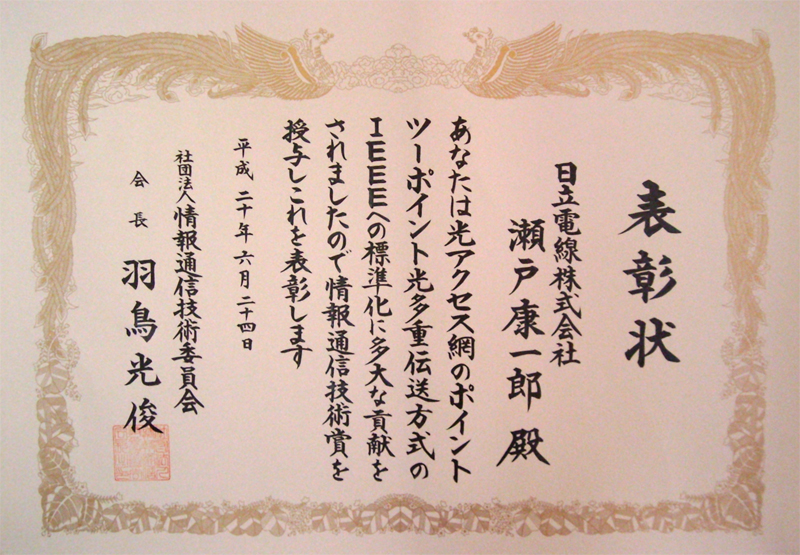 表彰状
日立電線株式会社
瀬戸康一郎 殿
あなたは光アクセス網のポイント
ツーポイント光多重伝送方式の
IEEEへの標準化に多大な貢献を
されましたので情報通信技術賞を
授与しこれを表彰します
平成 二十年 六月 二十四日
社団法人 情報通信技術委員会
会長 羽鳥光俊